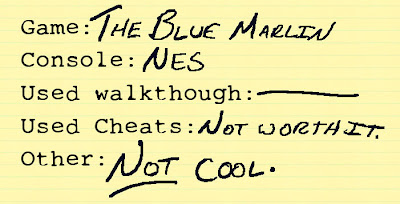 Game: The Blue Marlin
Console: NES
Used walkthough:
Used Cheats: Not worth it.
Other: Not cool.